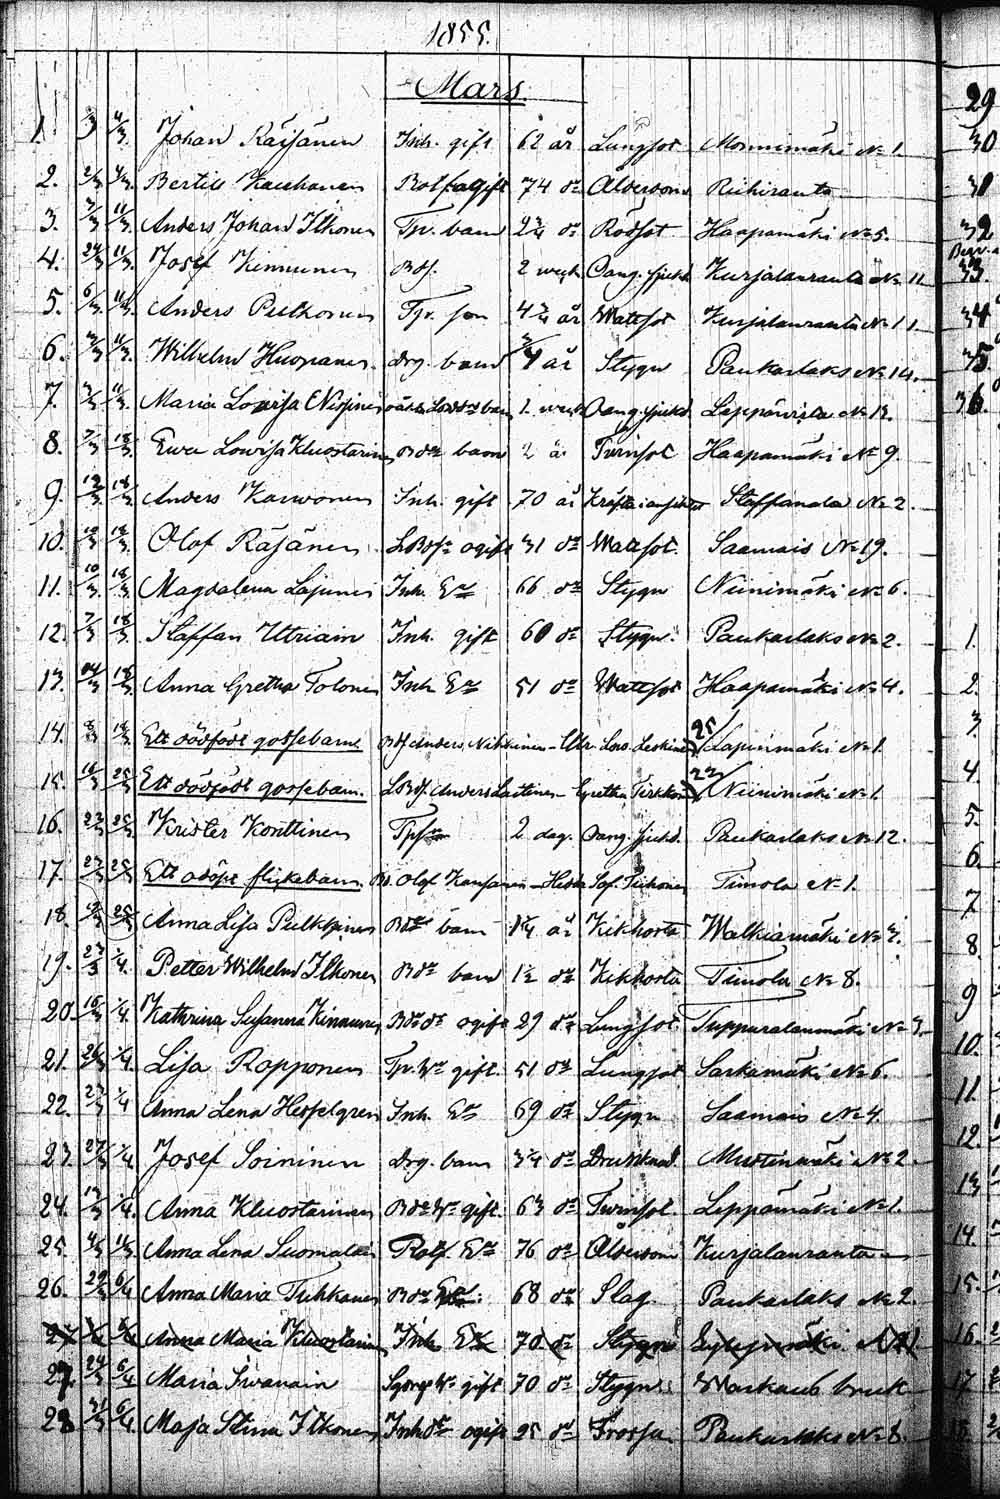 1855.
Mars
1. 3/3 4/3 Johan Räisänen Inh. gift 62 år Lungsot Monnimäki No 1.
2. 4/3 Bertils Kauhanen 74 do Ålderdom Riihiranta
3. 11/3 Anders Johan Ilkonen Tp. barn 2 3/4 do Rödsot Haapamäki No 5.
4. 11/3 Josef Kinnunen Bds. 2 veck. Oang. sjukd. Kurjalanranta No 11
5. 6/3 11/3 Anders Pulkonen Tpr. son 4 3/4 år Wattsot Kurjalanranta No 11.
6. 11/3 Wilhelm Huopanen drg. barn 3/4 år Stygn Paukarlaks No 14.
7. 11/3 Maria Lovisa Nissinen barn 2 veck Oang. sjukd. Leppävirta No 13.
8. 7/3 18/3 Ewa Lovisa Kluostarinen Bds barn 2 år Tvinsot Haapamäki No 9.
9. 12/3 18/3 Anders Karvonen Inh. gift 70 år Kräfta i ansiktet Staffanala No 2.
10. 10/3 18/3 Olof Räsänen LBds ogift 31 do Wattsot. Saamais No 19.
11. 10/3 18/3 Magdalena Lajunen Inh. Ea 66 do Stygn Niinimäki No 6.
12. 7/3 18/3 Staffan Utriain Inh. gift 60 do Stygn. Paukarlaks No 2.
13. 14/3 18/3 Anna Gretha Tolonen Inh Ea 51 do Wattsot Haapamäki No 4.
14. 8/3 18/3 Ett dödfödt gossebarn Bds Anders Nikkinen - Ulr. Lov. Leskinen 25/ Lapinmäki No 1.
15. 16/3 25/3 Ett dödfödt gossebarn. LBds. Anders Laitinen - Gretha Tirkkonen 22/ Niinimäki No 1.
16. 23/3 25/3 Krister Konttinen Tpson 2 dag. Oang. sjukd. Paukarlaks No 12.
17. 23/3 25/3 Ett odöpt flickebarn. Bd. Olof Kansanen - Hedv. Sof. Tiihonen Timola No 1.
18. 25/3 Anna Lisa Pulkkinen Bds barn 1 1/4 år Kikhosta Walkiamäki No 7.
19. 23/3 1/4 Petter Wilhelm Ilkonen Bds barn 1 1/2 do Kikhosta Timola No 8.
20. 16/3 1/4 Kathrina Susanna Kinnunen Bds dr ogift 29 do Lungsot Tuppuralanmäki No 3.
21. 26/3 1/4 Lisa Ropponen Tpr. hu gift. 51 do Lungsot Sarkamäki No 6.
22. 27/3 1/4 Anna Lena Hesselgren Inh. Ea 69 do Stygn Saamais No 4.
23. 27/3 1/4 Josef Soininen Drg. barn 3 3/4 do Drunknad Mustinmäki No 2
24. 13/3 1/4 Anna Kluostarinen Bds hu gift. 63 do Tvinsot. Leppämäki No 1.
25. Anna Lena Suomalain Rotf. Ea 76 do Ålderdom Kurjalanranta
26. 29/3 6/4 Anna Maria Tuhkanen Bds 68 do Slag. Paukarlaks No 2.
27 6/4 Anna Maria Kluostarin Inh Ea 70 do Stygn
27. 24/3 6/4 Maria Iwanain hu gift 70 do Stygn Warkaus bruk
28 31/3 6/4 Maja Stina Ilkonen Inh dr ogift 25 do Frossa Paukarlaks No 8.
29
30
31
32
33.
34
35
36.
1.
2.
3
4.
5.
6.
7
8.
9
10.
11.
12.
13
14.
15.
16.
17